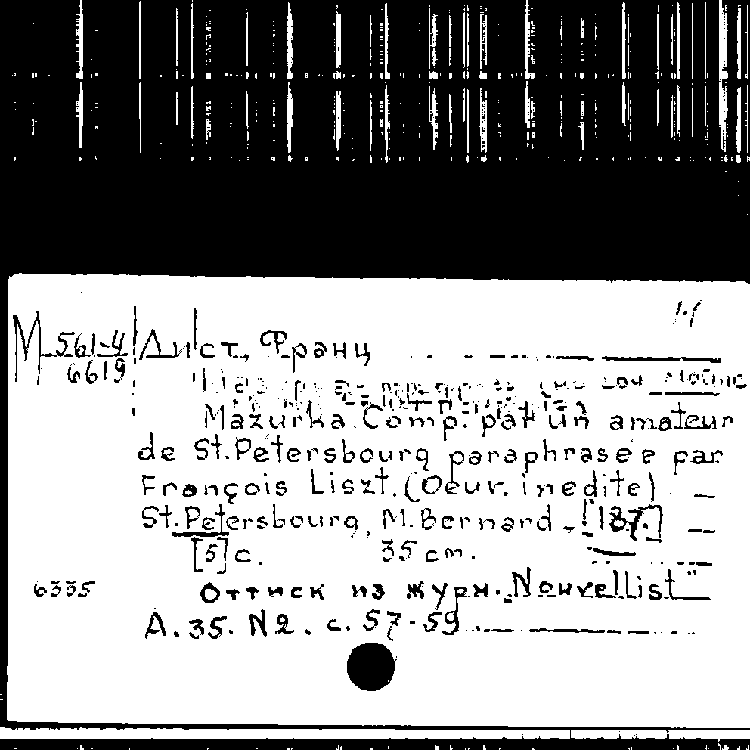 1-1
М 561-4 Лист, Франц
6619
Mazurka Comp. par un amateur
de St. Petersbourg paraphrasée par
François Liszt. (Oeuv. inedite) —
St. Petersbourg, M. Bernard - [187.] —
[5] с. 35 см.
6335 Оттиск из журн. „Nouvellist"
А. 35. N2. с. 57-59